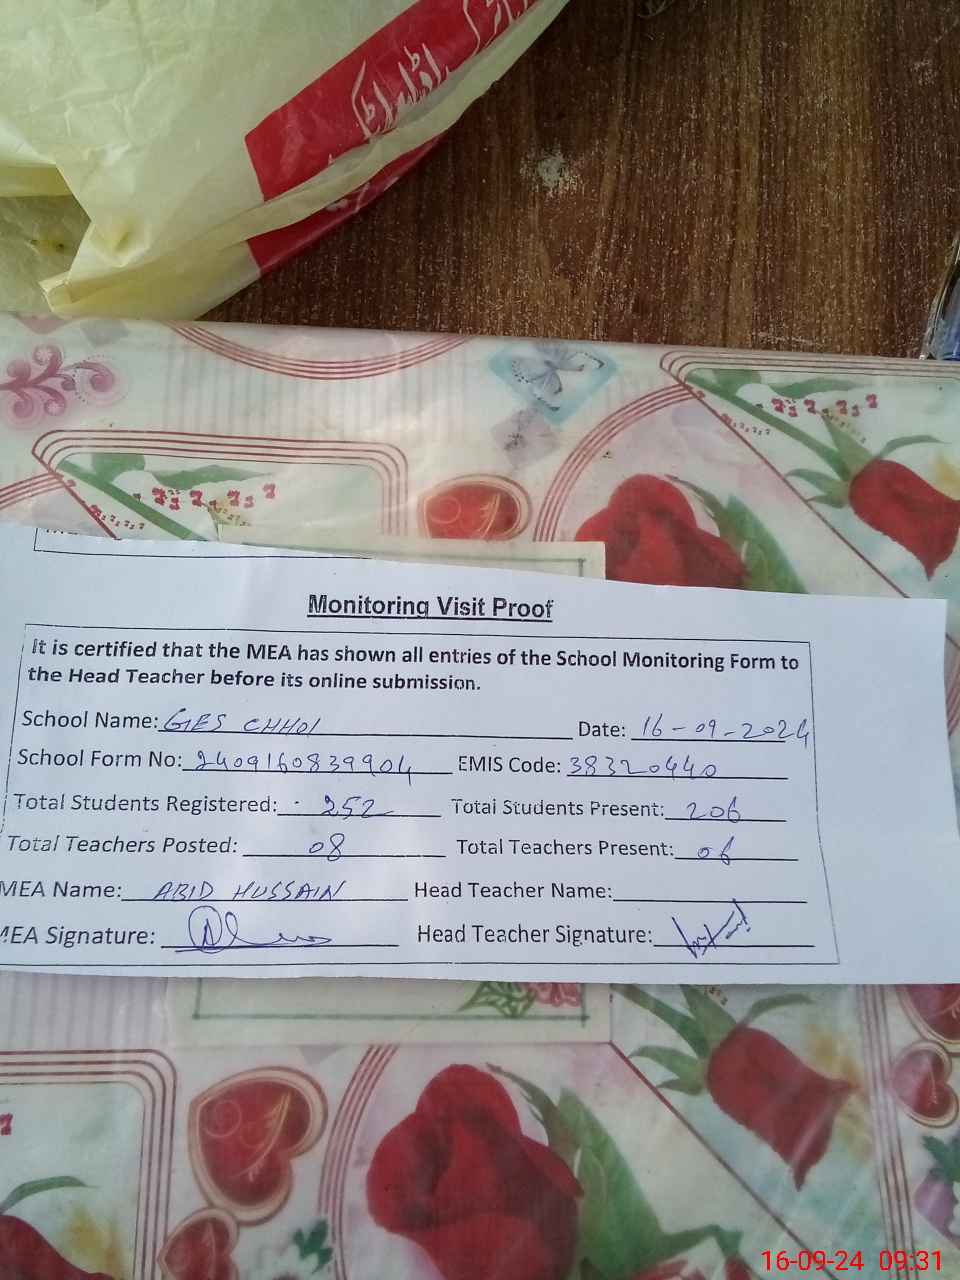 Monitoring Visit Proof
It is certified that the MEA has shown all entries of the School Monitoring Form to
the Head Teacher before its online submission.
School Name: GES CHHOI Date: 16-09-2024
School Form No: 2409160839904 EMIS Code: 38320440
Total Students Registered: 252 Total Students Present: 206
Total Teachers Posted: 08 Total Teachers Present: 06
MEA Name: ABID HUSSAIN Head Teacher Name:
MEA Signature: Head Teacher Signature:
16-09-24 09:31